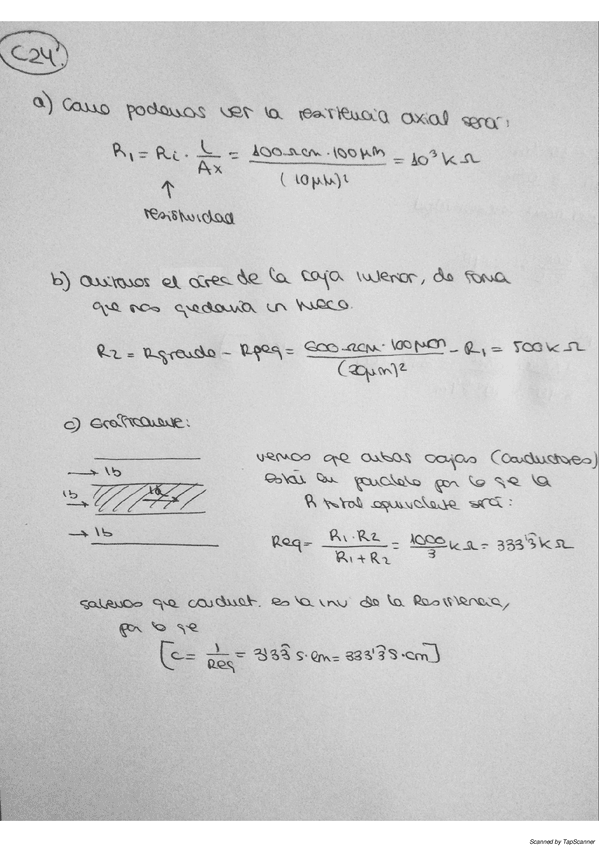 C24'.
a) Como podemos ver la resistencia axial será:
R1 = Ri · L/Ax = 100Ωcm · 100μm/(10μm)² = 10³ KΩ
↑
resistividad
b) quitamos el área de la caja interior, de forma
que nos quedaría un hueco.
R2 = Rgrande - Rpeq = 600Ωcm · 100μm/(20μm)² - R1 = 500KΩ
c) Gráficamente:
→ Ib
Ib →
→ Ib
vemos que ambas cajas (conductores)
están en paralelo por lo que la
R total equivalente será:
Req = R1 · R2/R1 + R2 = 1000/3 KΩ = 333'3 KΩ
sabemos que conduct. es la inv de la Resistencia,
por lo que
[C = 1/Req = 3'33 S·cm = 333'3 S·cm]
Scanned by TapScanner